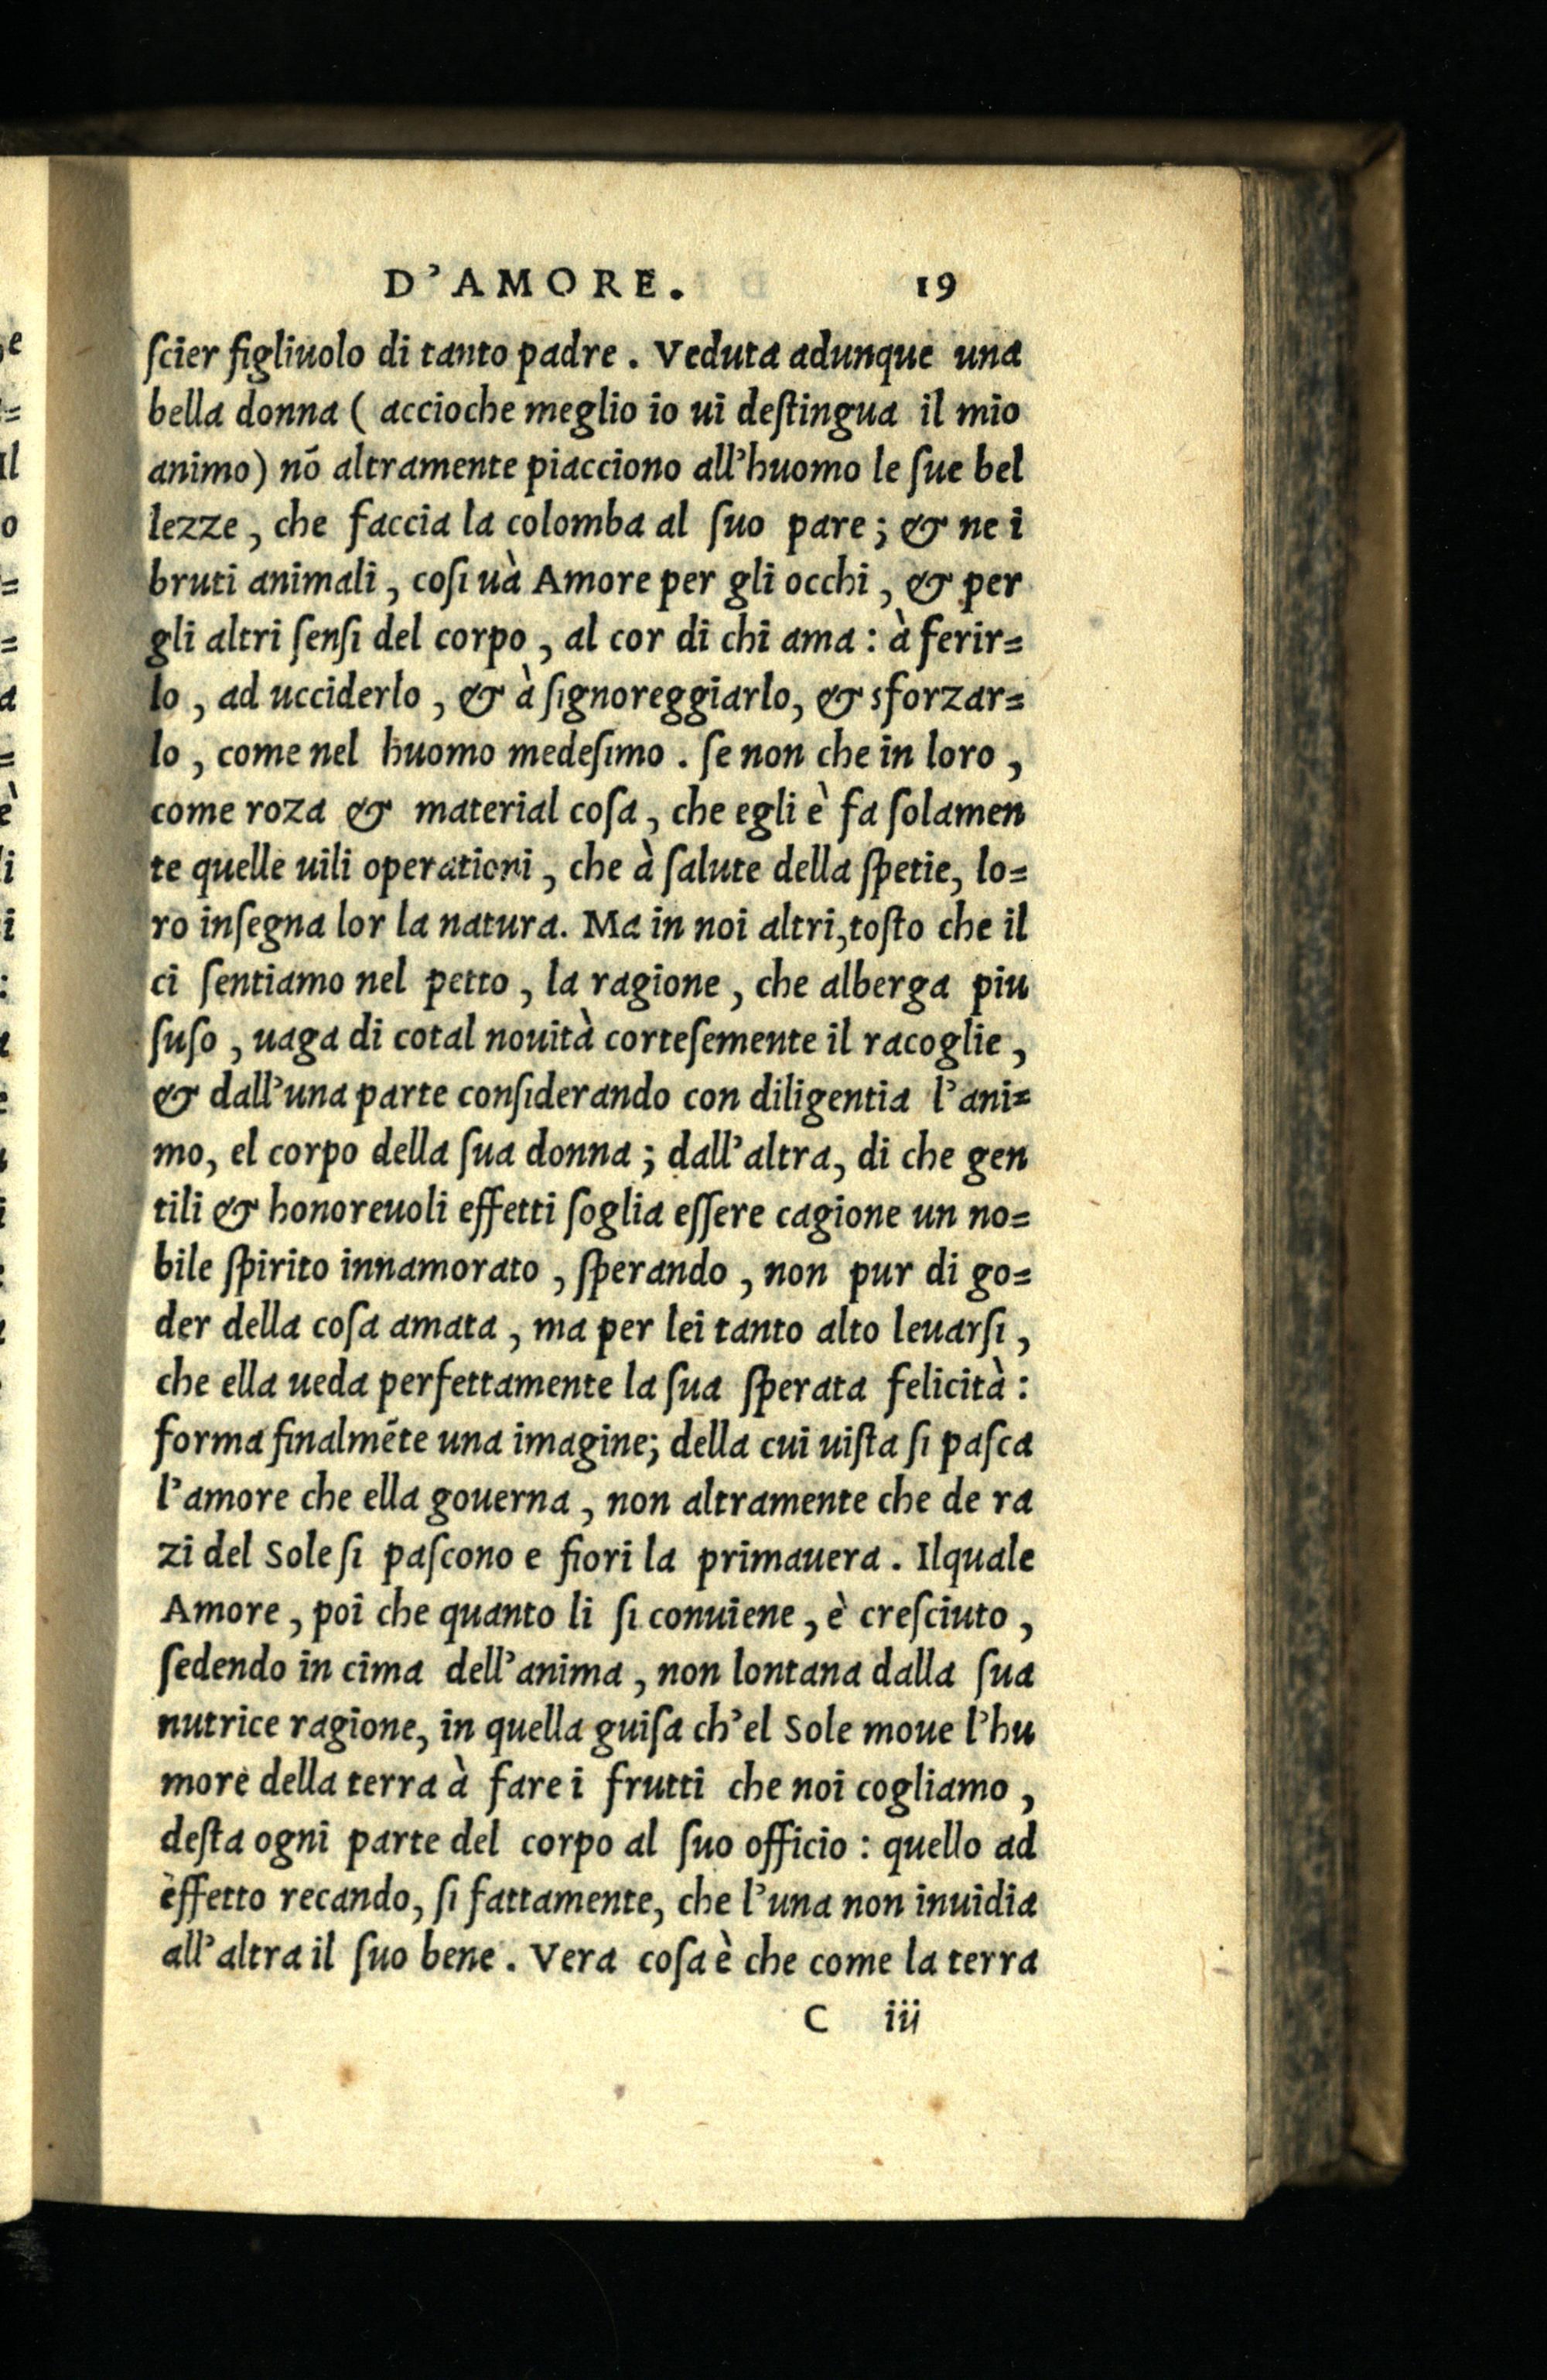 D'AMORE. 19
ſcier figliuolo di tanto padre. Veduta adunque una
bella donna ( accioche meglio io ui deſtingua il mio
animo) nõ altramente piacciono all'huomo le ſue bel
lezze, che faccia la colomba al ſuo pare; & ne i
bruti animali, coſi uà Amore per gli occhi, & per
gli altri ſenſi del corpo, al cor di chi ama: à ferir=
lo, ad ucciderlo, & à ſignoreggiarlo, & sforzar=
lo, come nel huomo medeſimo. ſe non che in loro,
come roza & material coſa, che egli è fa ſolamen
te quelle uili operationi, che à ſalute della ſpetie, lo=
ro inſegna lor la natura. Ma in noi altri, toſto che il
ci ſentiamo nel petto, la ragione, che alberga piu
ſuſo, uaga di cotal nouità corteſemente il racoglie,
& dall'una parte conſiderando con diligentia l'ani=
mo, el corpo della ſua donna; dall'altra, di che gen
tili & honoreuoli effetti ſoglia eſſere cagione un no=
bile ſpirito innamorato, ſperando, non pur di go=
der della coſa amata, ma per lei tanto alto leuarſi,
che ella ueda perfettamente la ſua ſperata felicità:
forma finalmẽte una imagine; della cui uiſta ſi paſca
l'amore che ella gouerna, non altramente che de ra
zi del Sole ſi paſcono e fiori la primauera. Ilquale
Amore, poi che quanto li ſi conuiene, è creſciuto,
ſedendo in cima dell'anima, non lontana dalla ſua
nutrice ragione, in quella guiſa ch'el Sole moue l'hu
more della terra à fare i frutti che noi cogliamo,
deſta ogni parte del corpo al ſuo officio: quello ad
èffetto recando, ſi fattamente, che l'una non inuidia
all'altra il ſuo bene. Vera coſa è che come la terra
C iii